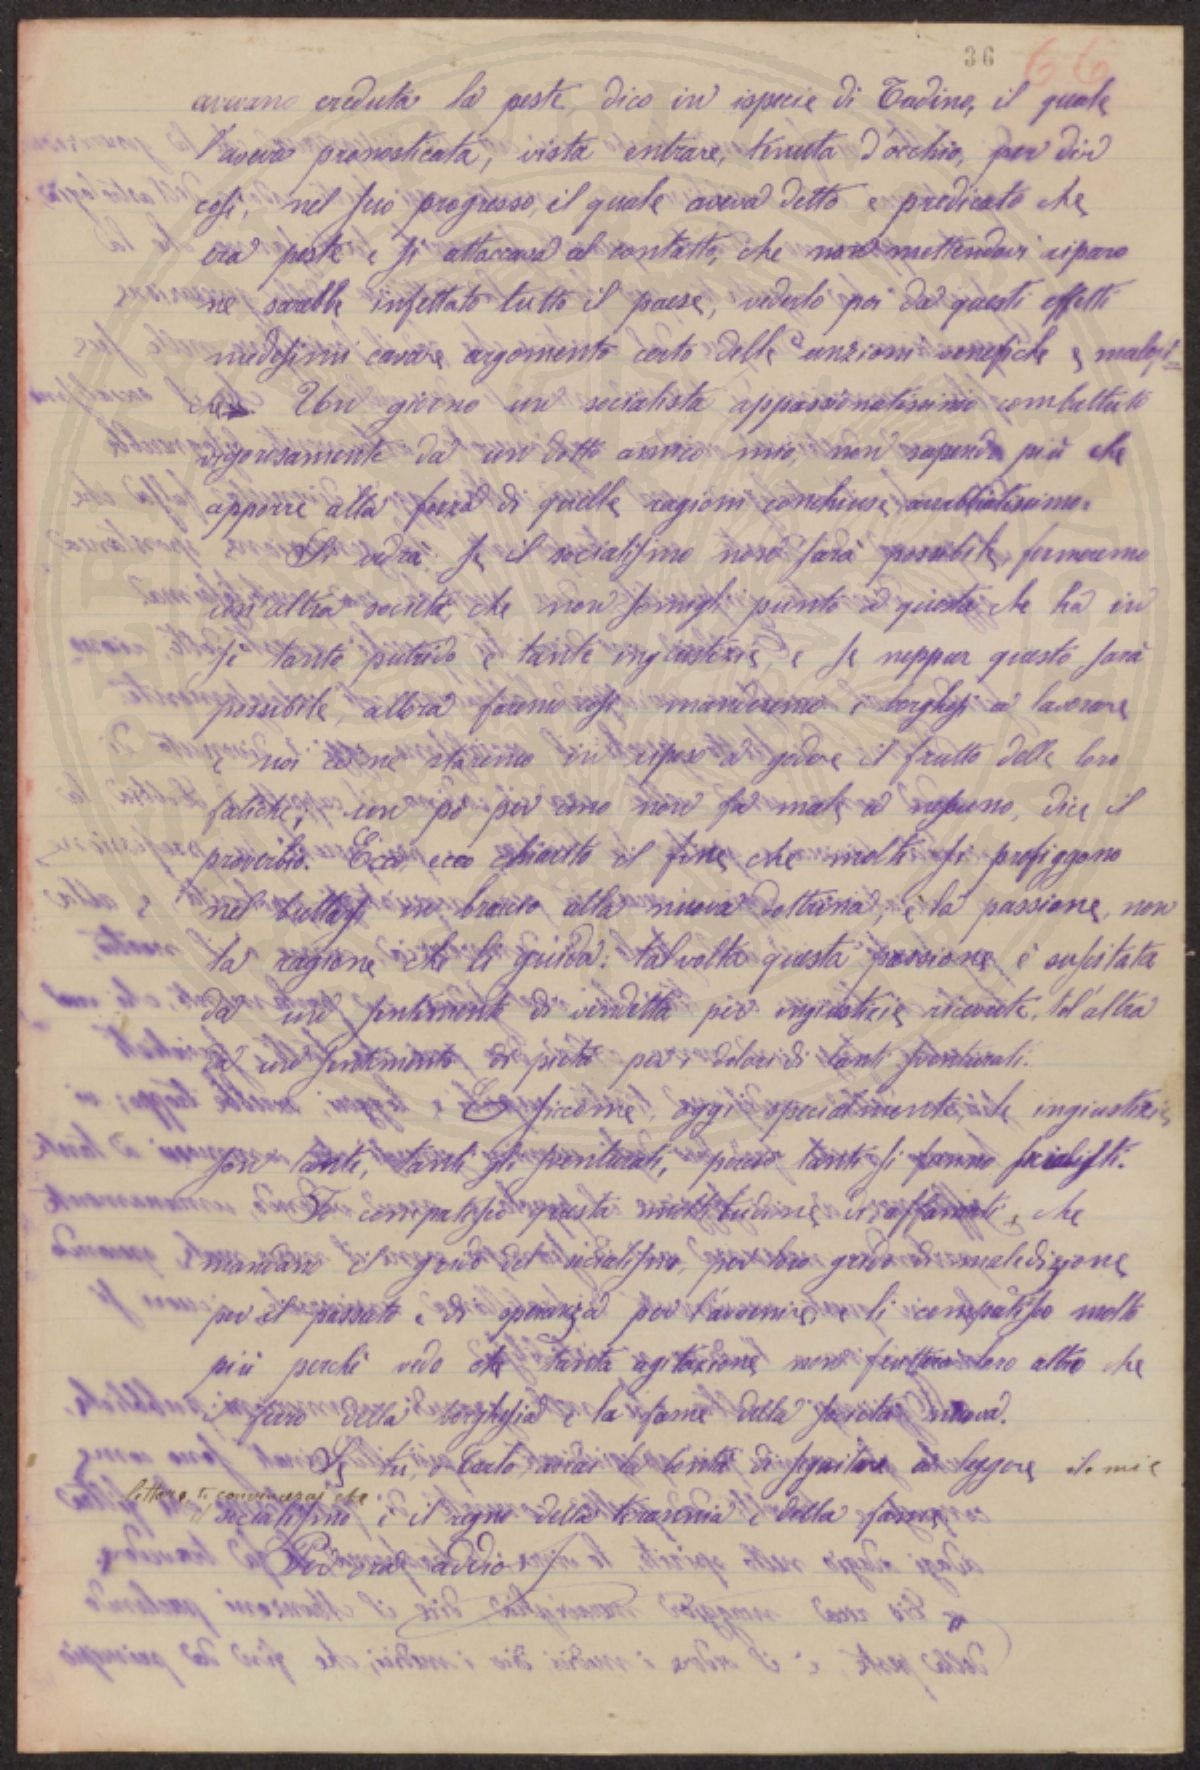 36 66
avevano creduta la peste, dico in ispecie di Tadino, il quale
l'aveva pronosticata, vista entrare, tenuta d'occhio, per dir
così, nel suo progresso, il quale aveva detto e predicato che
era peste e si attaccava al contatto, che non mettendovi riparo
ne sarebbe infettato tutto il paese, vederlo poi da questi effetti
medesimi cavare argomento certo delle unzioni venefiche e malefi=
che. Un giorno un socialista appassionatissimo combattuto
vigorosamente da un dotto amico mio, non sapendo più che
apporre alla forza di quelle ragioni conchiuse arrabbiatissimo:
Si vedrà. Se il socialismo non sarà possibile, formeremo
un'altra società, che non somigli punto a questa che ha in
sè tanto putrido e tante ingiustizie, e se neppur questo sarà
possibile, allora faremo così manderemo i borghesi a lavorare
e noi ce ne staremo in riposo a godere il frutto delle loro
fatiche; un po' per uno non fa male a nessuno, dice il
proverbio. Ecco, ecco chiarito il fine che molti si prefiggono
nel buttarsi in braccio alla nuova dottrina, è la passione, non
la ragione che li guida: talvolta questa passione è suscitata
da un sentimento di vendetta per ingiustizie ricevute, tal'altra
da un sentimento di pietà per i dolori di tanti sventurati.
E siccome, oggi specialmente, le ingiustizie
son tante, tanti gli sventurati, perciò tanti si fanno socialisti.
Io compatisco questa moltitudine di affamati, che
mandano il grido del socialismo, per loro grido di maledizione
per il passato e di speranza per l'avvenire, e li compatisco molto
più perchè vedo che tanta agitazione non frutterà loro altro che
il ferro della borghesia e la fame della società nuova.
Se tu, o Carlo, avrai la bontà di seguitare a leggere le mie
lettere, ti convincerai che
il socialismo è il regno della tirannia e della fame.
Per ora addio.